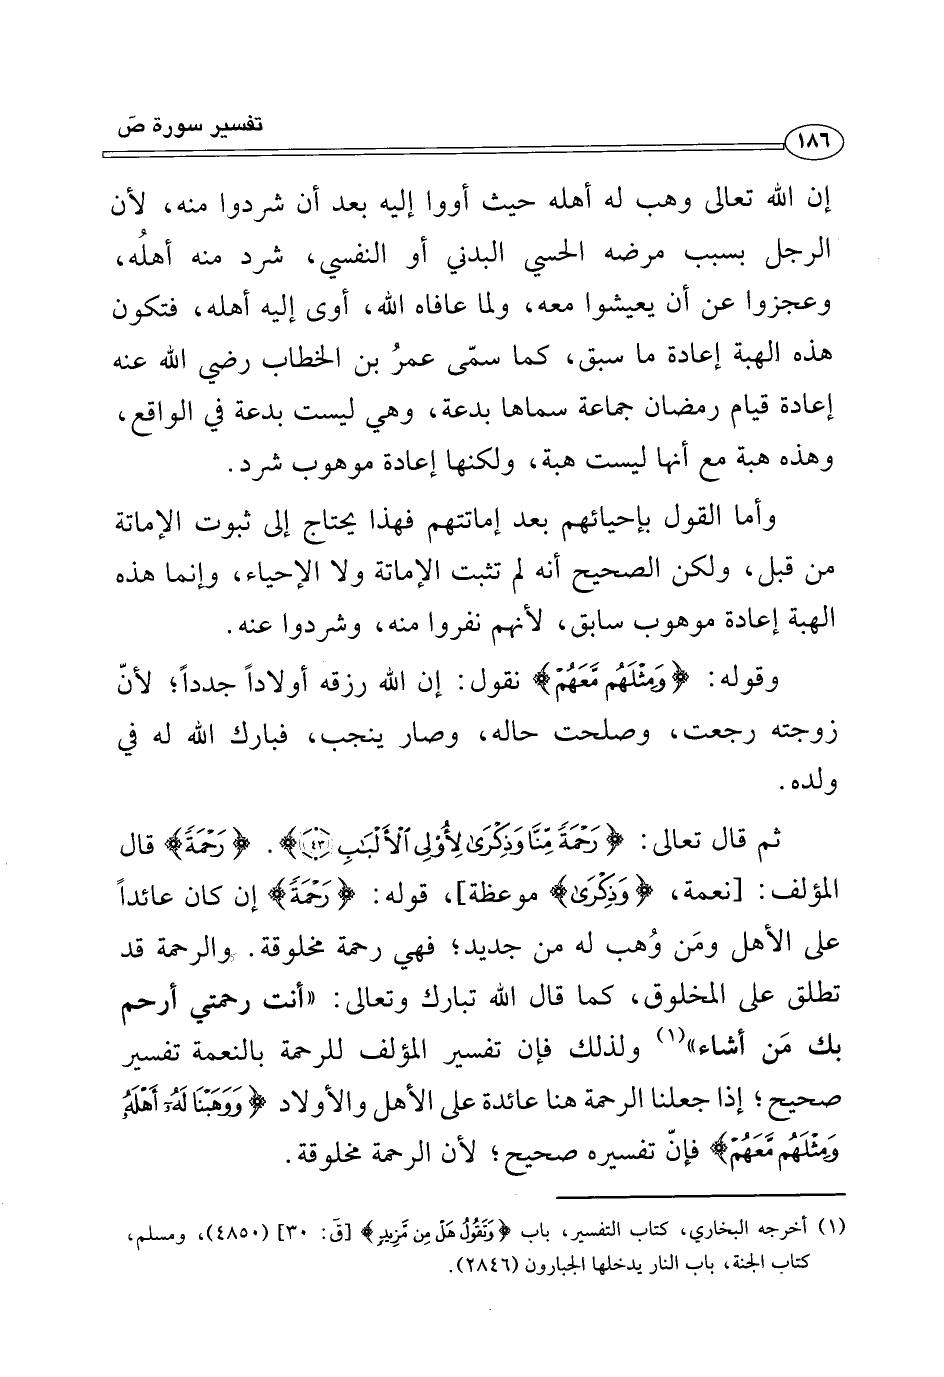 تفسير سورة صَ
١٨٦
إن الله تعالى وهب له أهله حيث أووا إليه بعد أن شردوا منه، لأن
الرجل بسبب مرضه الحسي البدني أو النفسي، شرد منه أهلُه،
وعجزوا عن أن يعيشوا معه، ولما عافاه الله، أوى إليه أهله، فتكون
هذه الهبة إعادة ما سبق، كما سمّى عمرُ بن الخطاب رضي الله عنه
إعادة قيام رمضان جماعة سماها بدعة، وهي ليست بدعة في الواقع،
وهذه هبة مع أنها ليست هبة، ولكنها إعادة موهوب شرد.
وأما القول بإحيائهم بعد إماتتهم فهذا يحتاج إلى ثبوت الإماتة
من قبل، ولكن الصحيح أنه لم تثبت الإماتة ولا الإحياء، وإنما هذه
الهبة إعادة موهوب سابق، لأنهم نفروا منه، وشردوا عنه.
وقوله: ﴿وَمِثْلَهُم مَّعَهُمْ﴾ نقول: إن الله رزقه أولاداً جدداً؛ لأنّ
زوجته رجعت، وصلحت حاله، وصار ينجب، فبارك الله له في
ولده.
ثم قال تعالى: ﴿رَحْمَةً مِّنَّا وَذِكْرَىٰ لِأُوْلِى ٱلْأَلْبَٰبِ ٤٣﴾. ﴿رَحْمَةً﴾ قال
المؤلف: [نعمة، ﴿وَذِكْرَىٰ﴾ موعظة]، قوله: ﴿رَحْمَةً﴾ إن كان عائداً
على الأهل ومَن وُهب له من جديد؛ فهي رحمة مخلوقة. والرحمة قد
تطلق على المخلوق، كما قال الله تبارك وتعالى: «أنت رحمتي أرحم
بك مَن أشاء»(١) ولذلك فإن تفسير المؤلف للرحمة بالنعمة تفسير
صحيح؛ إذا جعلنا الرحمة هنا عائدة على الأهل والأولاد ﴿وَوَهَبْنَا لَهُۥٓ أَهْلَهُۥ
وَمِثْلَهُم مَّعَهُمْ﴾ فإنّ تفسيره صحيح؛ لأن الرحمة مخلوقة.
(١) أخرجه البخاري، كتاب التفسير، باب ﴿وَتَقُولُ هَلْ مِن مَّزِيدٍ﴾ [قَ: ٣٠] (٤٨٥٠)، ومسلم،
كتاب الجنة، باب النار يدخلها الجبارون (٢٨٤٦).